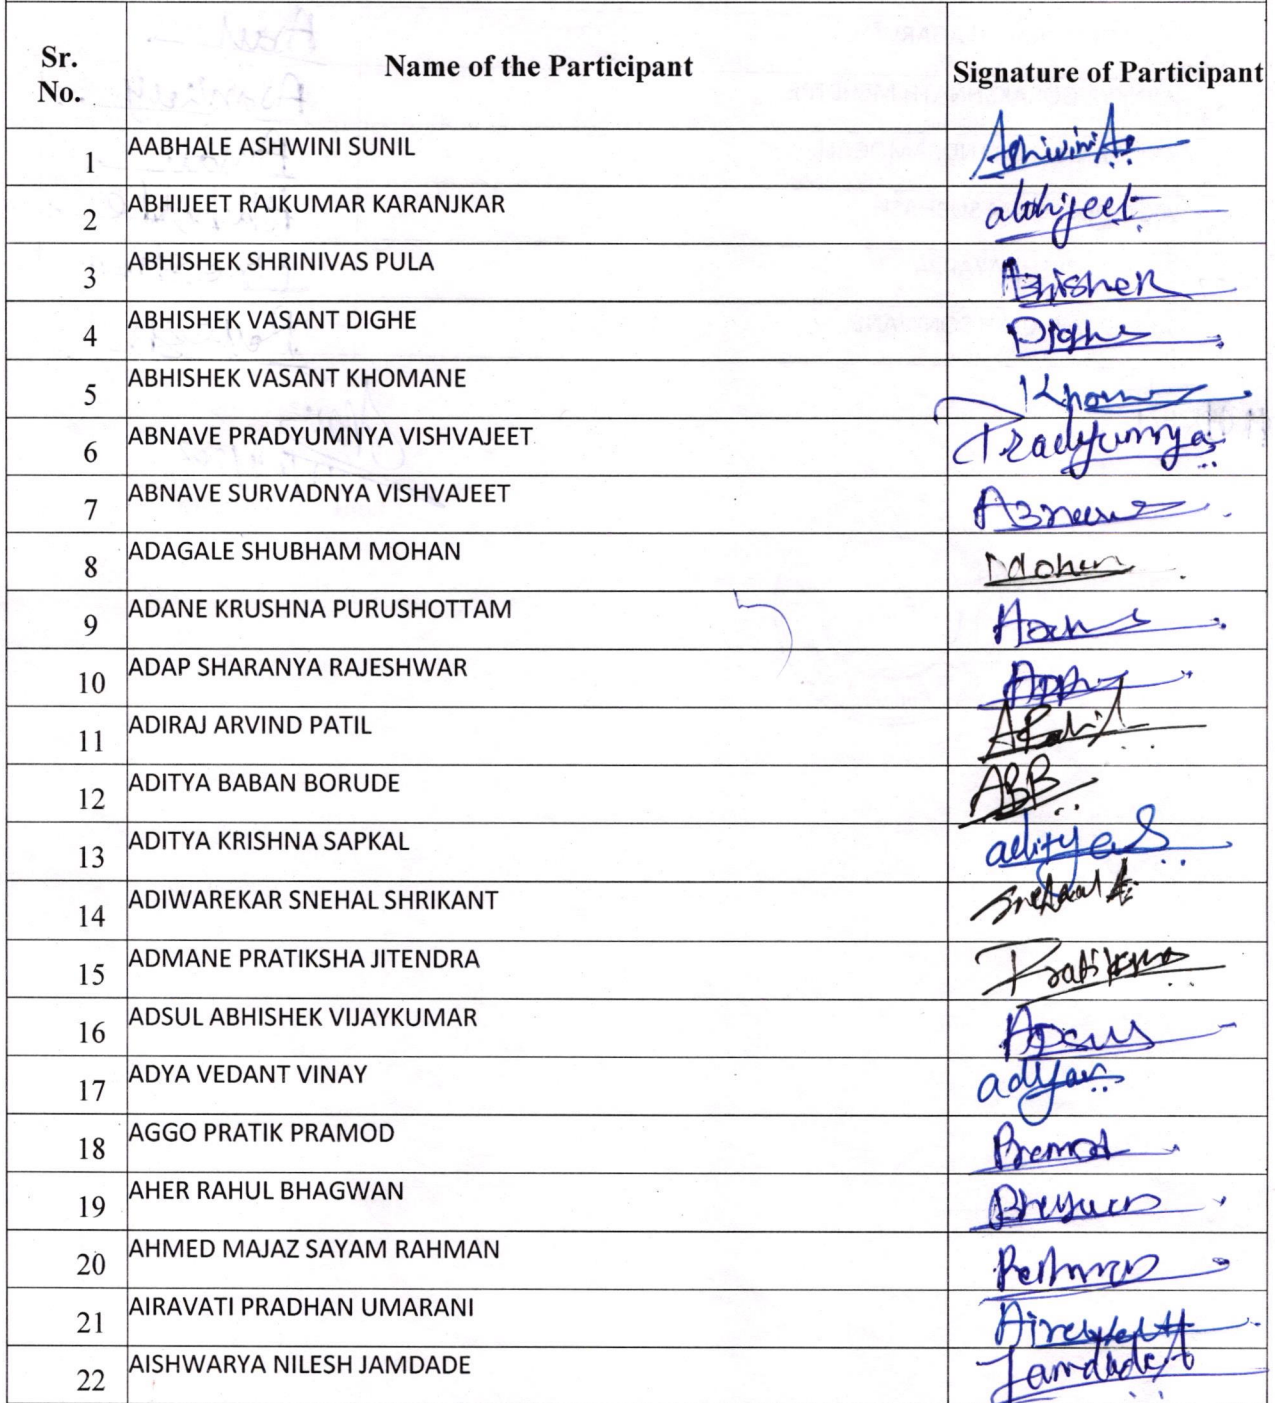 Sr. No. Name of the Participant Signature of Participant
1 AABHALE ASHWINI SUNIL Ashwini
2 ABHIJEET RAJKUMAR KARANJKAR abhijeet
3 ABHISHEK SHRINIVAS PULA Abhishek
4 ABHISHEK VASANT DIGHE Dighe
5 ABHISHEK VASANT KHOMANE
6 ABNAVE PRADYUMNYA VISHVAJEET Pradyumnya
7 ABNAVE SURVADNYA VISHVAJEET
8 ADAGALE SHUBHAM MOHAN Mohan
9 ADANE KRUSHNA PURUSHOTTAM
10 ADAP SHARANYA RAJESHWAR
11 ADIRAJ ARVIND PATIL
12 ADITYA BABAN BORUDE ABB
13 ADITYA KRISHNA SAPKAL aditya S
14 ADIWAREKAR SNEHAL SHRIKANT Snehal
15 ADMANE PRATIKSHA JITENDRA Pratiksha
16 ADSUL ABHISHEK VIJAYKUMAR Adsul
17 ADYA VEDANT VINAY
18 AGGO PRATIK PRAMOD Pramod
19 AHER RAHUL BHAGWAN
20 AHMED MAJAZ SAYAM RAHMAN
21 AIRAVATI PRADHAN UMARANI
22 AISHWARYA NILESH JAMDADE